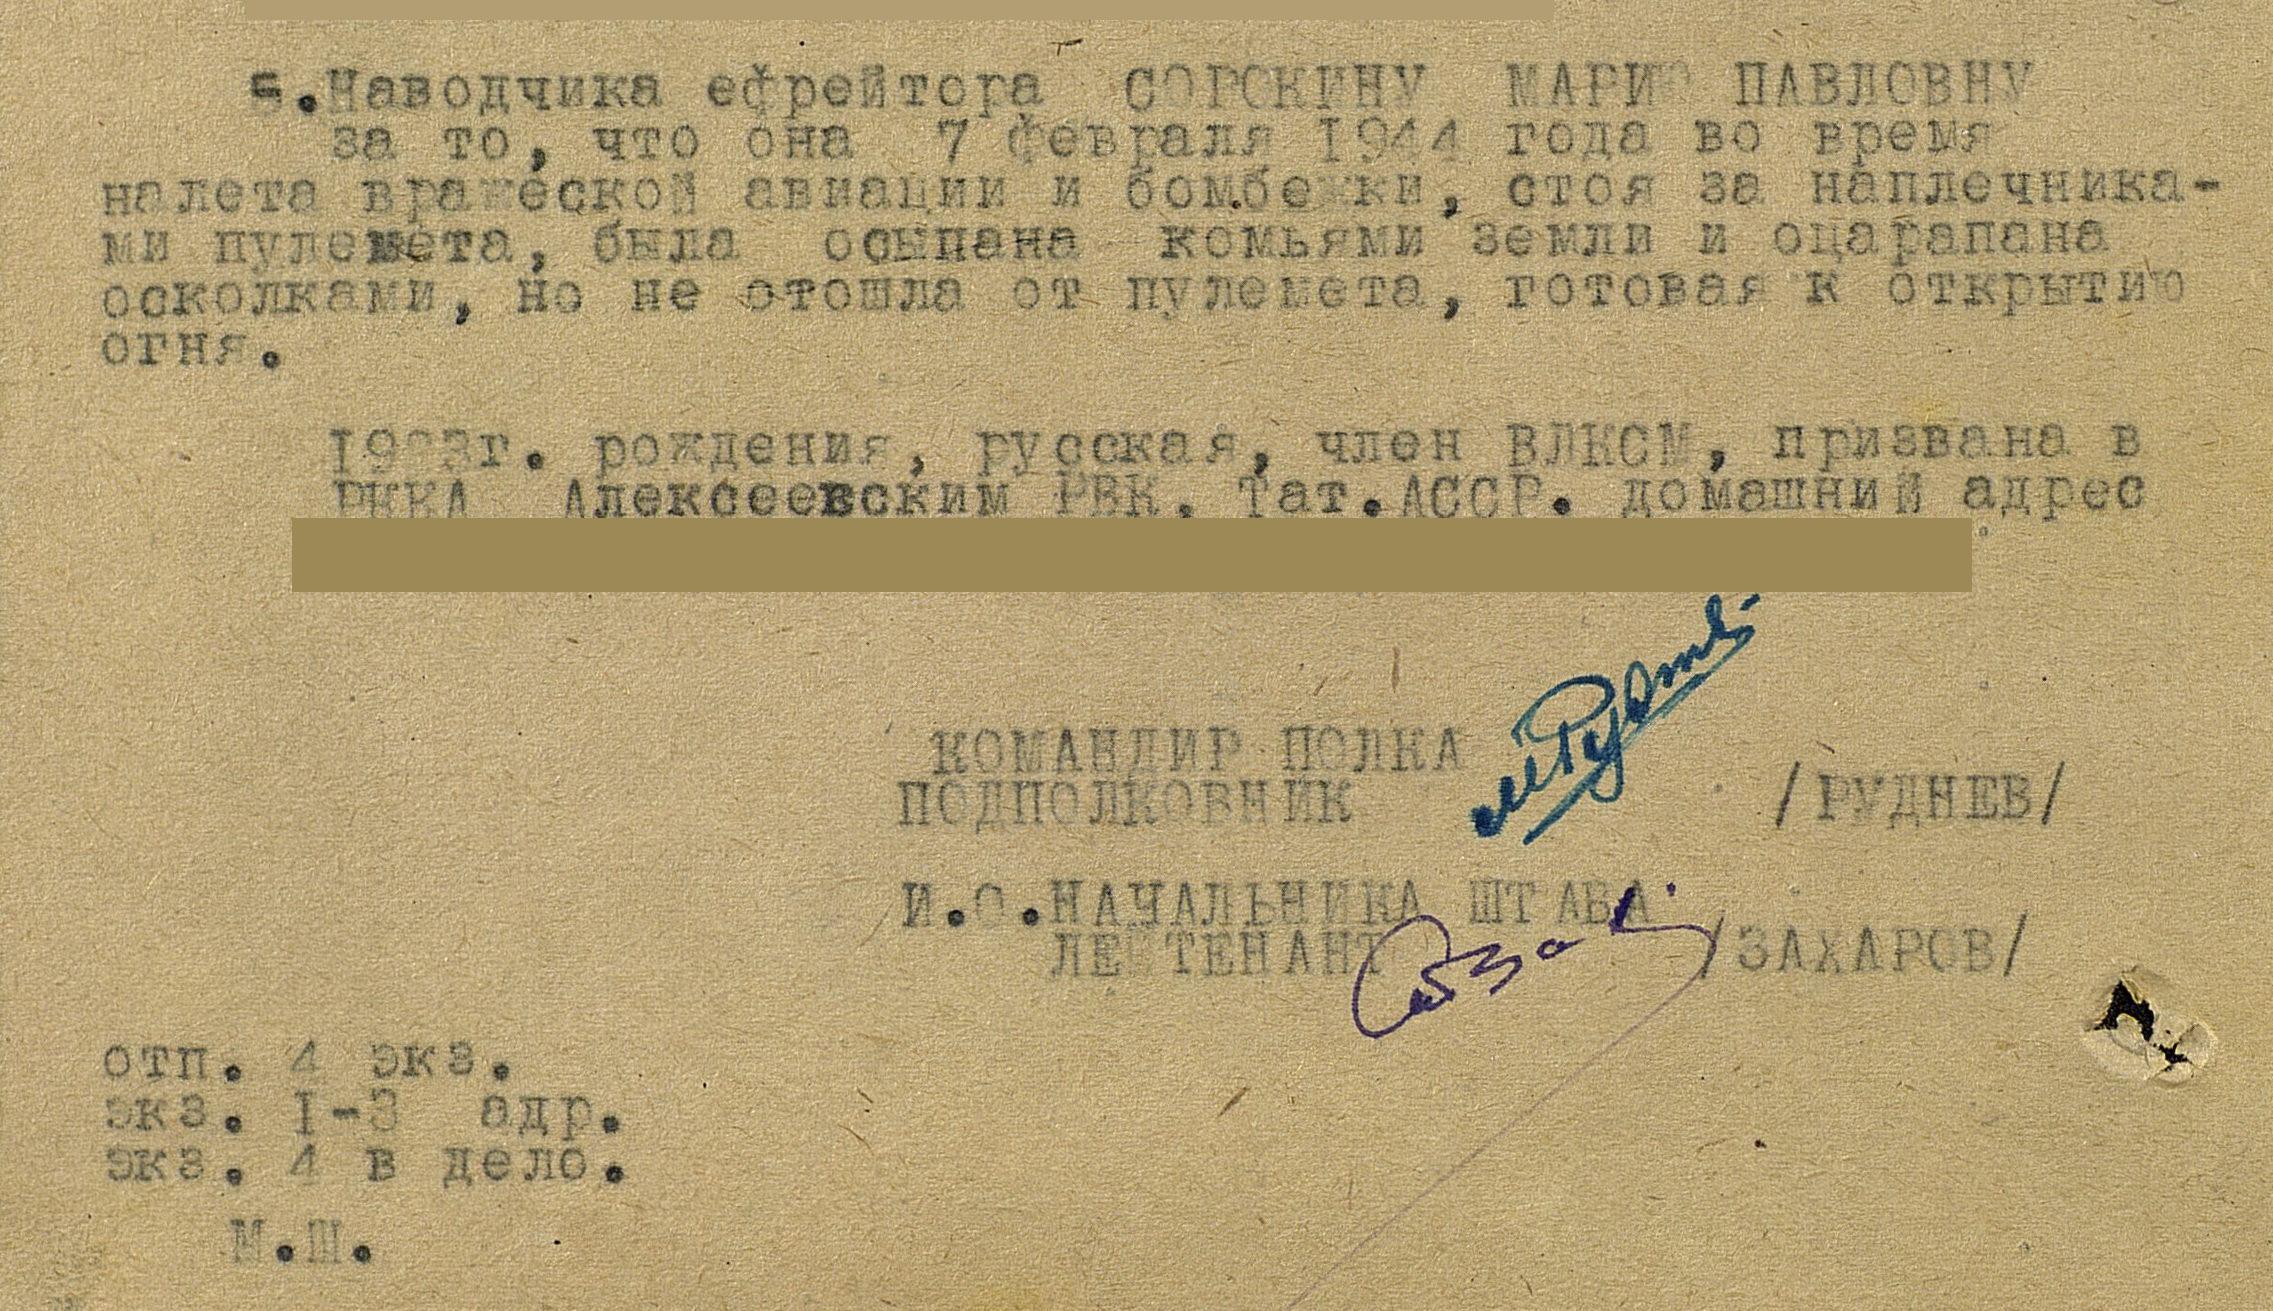 5.Наводчика ефрейтора СОРОКИНУ МАРИЮ ПАВЛОВНУ
за то, что она 7 февраля 1944 года во время
налета вражеской авиации и бомбежки, стоя за наплечника-
ми пулемета, была осыпана комьями земли и оцарапана
осколками, но не отошла от пулемета, готовая к открытию
огня.
1923г. рождения, русская, член ВЛКСМ, призвана в
РККА Алексеевским РВК, Тат.АССР. домашний адрес
КОМАНДИР ПОЛКА
ПОДПОЛКОВНИК /РУДНЕВ/
И.О.НАЧАЛЬНИКА ШТАБА
ЛЕЙТЕНАНТ /ЗАХАРОВ/
отп. 4 экз.
экз. I-3 адр.
экз. 4 в дело.
М.Ш.